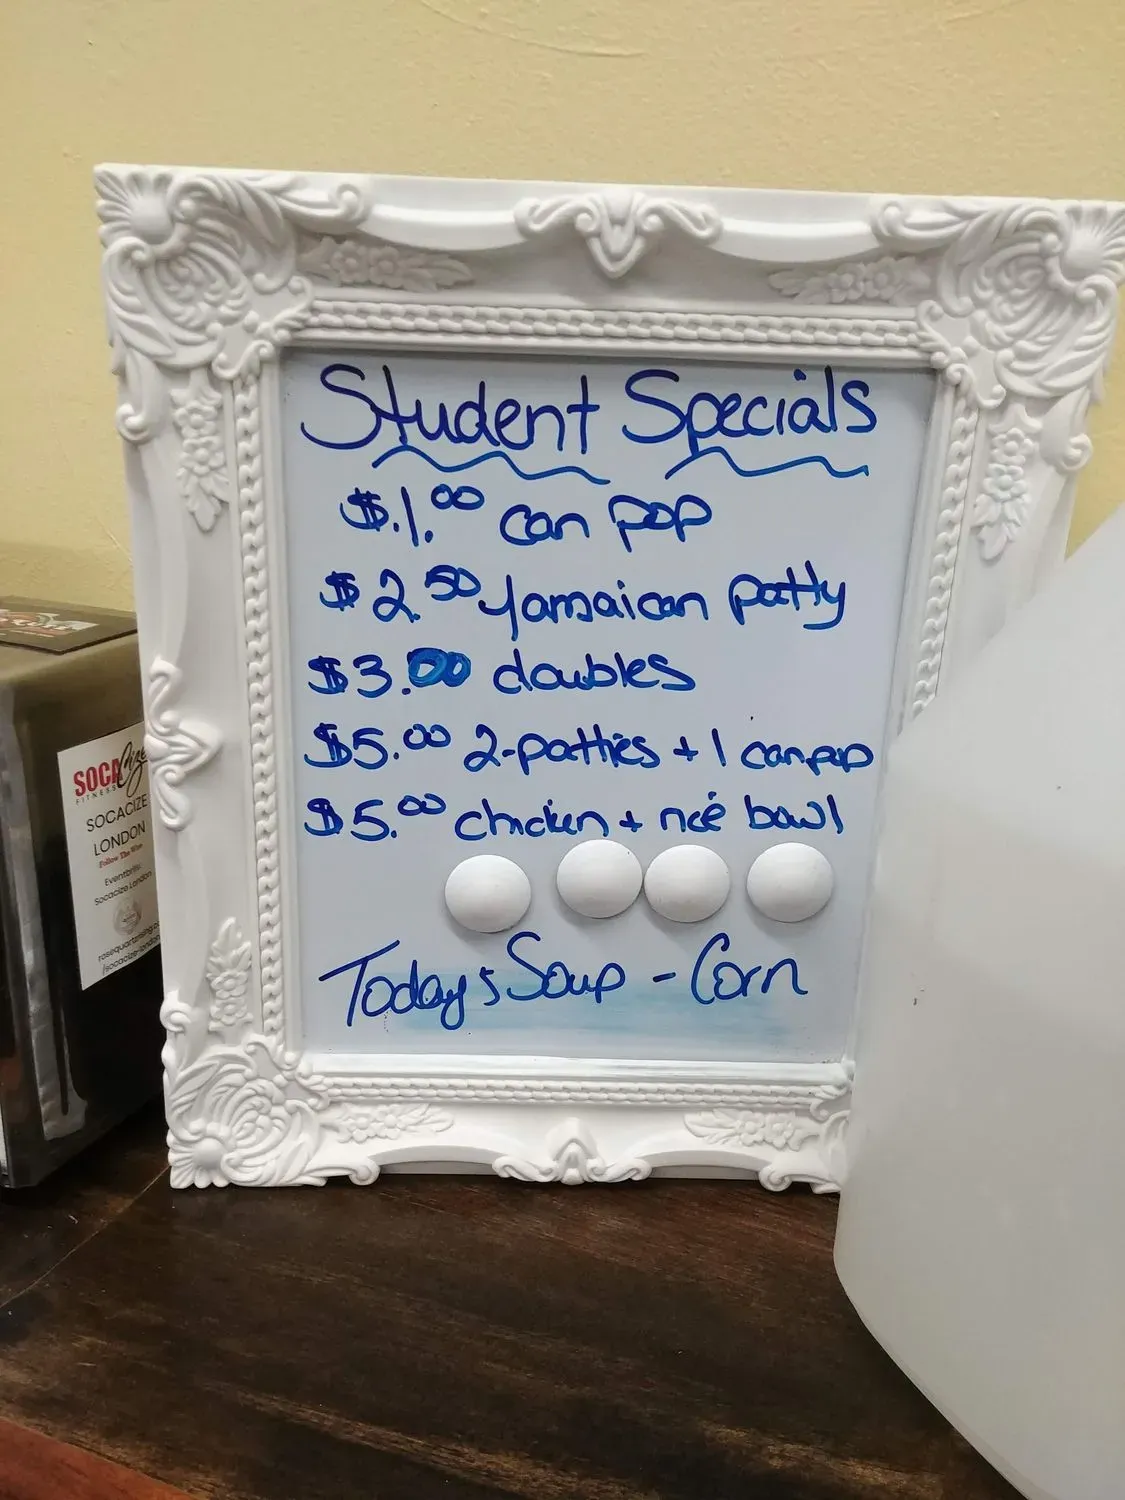 Student Specials
$.1.00 can pop
$2.50 Jamaican patty
$3.00 doubles
$5.00 2-patties + 1 can pop
$5.00 chicken + rice bowl
Today's Soup - Corn
SOCACize
FITNESS
SOCACIZE
LONDON
Follow The Vibe
Eventbrite:
Socacize London